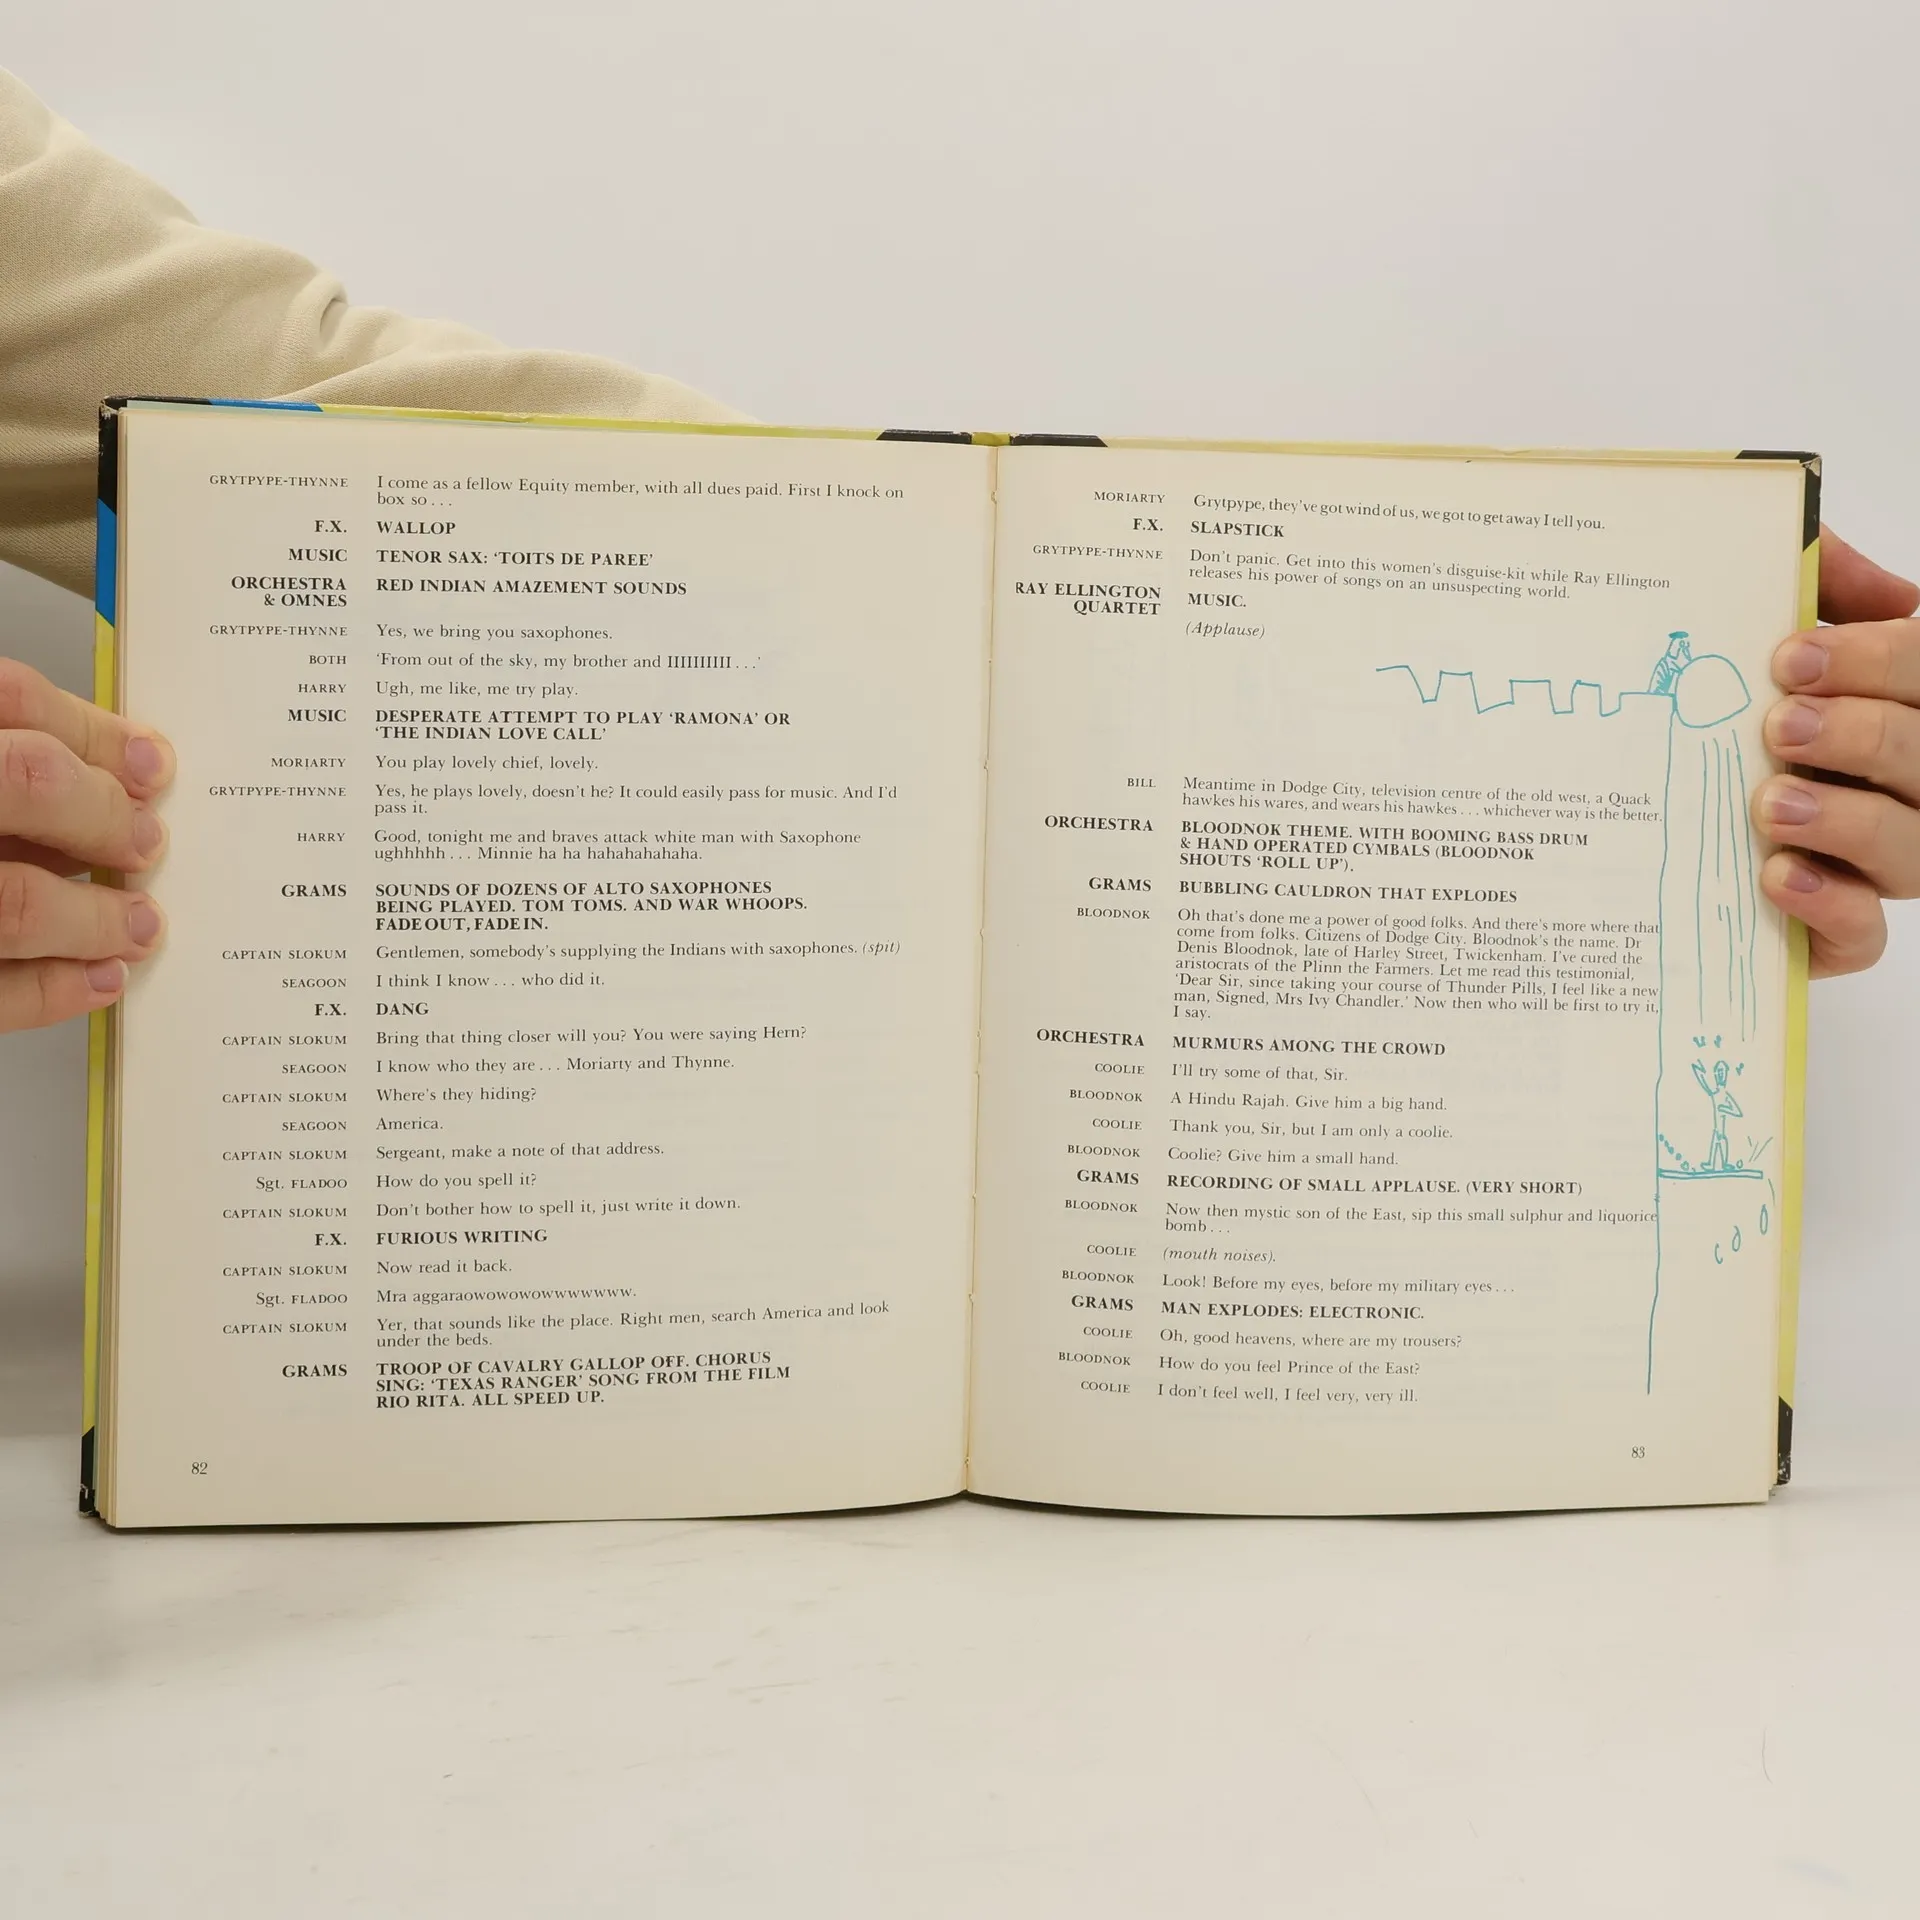 GRYTPYPE-THYNNE I come as a fellow Equity member, with all dues paid. First I knock on
box so . . .
F.X. WALLOP
MUSIC TENOR SAX: ‘TOITS DE PAREE’
ORCHESTRA RED INDIAN AMAZEMENT SOUNDS
& OMNES
GRYTPYPE-THYNNE Yes, we bring you saxophones.
BOTH ‘From out of the sky, my brother and IIIIIIIIII . . .’
HARRY Ugh, me like, me try play.
MUSIC DESPERATE ATTEMPT TO PLAY ‘RAMONA’ OR
‘THE INDIAN LOVE CALL’
MORIARTY You play lovely chief, lovely.
GRYTPYPE-THYNNE Yes, he plays lovely, doesn’t he? It could easily pass for music. And I’d
pass it.
HARRY Good, tonight me and braves attack white man with Saxophone
ughhhhh . . . Minnie ha ha hahahahahaha.
GRAMS SOUNDS OF DOZENS OF ALTO SAXOPHONES
BEING PLAYED. TOM TOMS. AND WAR WHOOPS.
FADE OUT, FADE IN.
CAPTAIN SLOKUM Gentlemen, somebody’s supplying the Indians with saxophones. (spit)
SEAGOON I think I know . . . who did it.
F.X. DANG
CAPTAIN SLOKUM Bring that thing closer will you? You were saying Hern?
SEAGOON I know who they are . . . Moriarty and Thynne.
CAPTAIN SLOKUM Where’s they hiding?
SEAGOON America.
CAPTAIN SLOKUM Sergeant, make a note of that address.
Sgt. FLADOO How do you spell it?
CAPTAIN SLOKUM Don’t bother how to spell it, just write it down.
F.X. FURIOUS WRITING
CAPTAIN SLOKUM Now read it back.
Sgt. FLADOO Mra aggaraowowowowwwwwww.
CAPTAIN SLOKUM Yer, that sounds like the place. Right men, search America and look
under the beds.
GRAMS TROOP OF CAVALRY GALLOP OFF. CHORUS
SING: ‘TEXAS RANGER’ SONG FROM THE FILM
RIO RITA. ALL SPEED UP.
82
MORIARTY Grytpype, they’ve got wind of us, we got to get away I tell you.
F.X. SLAPSTICK
GRYTPYPE-THYNNE Don’t panic. Get into this women’s disguise-kit while Ray Ellington
releases his power of songs on an unsuspecting world.
RAY ELLINGTON MUSIC.
QUARTET
(Applause)
BILL Meantime in Dodge City, television centre of the old west, a Quack
hawkes his wares, and wears his hawkes . . . whichever way is the better.
ORCHESTRA BLOODNOK THEME. WITH BOOMING BASS DRUM
& HAND OPERATED CYMBALS (BLOODNOK
SHOUTS ‘ROLL UP’).
GRAMS BUBBLING CAULDRON THAT EXPLODES
BLOODNOK Oh that’s done me a power of good folks. And there’s more where that
come from folks. Citizens of Dodge City. Bloodnok’s the name. Dr
Denis Bloodnok, late of Harley Street, Twickenham. I’ve cured the
aristocrats of the Plinn the Farmers. Let me read this testimonial,
‘Dear Sir, since taking your course of Thunder Pills, I feel like a new
man, Signed, Mrs Ivy Chandler.’ Now then who will be first to try it,
I say.
ORCHESTRA MURMURS AMONG THE CROWD
COOLIE I’ll try some of that, Sir.
BLOODNOK A Hindu Rajah. Give him a big hand.
COOLIE Thank you, Sir, but I am only a coolie.
BLOODNOK Coolie? Give him a small hand.
GRAMS RECORDING OF SMALL APPLAUSE. (VERY SHORT)
BLOODNOK Now then mystic son of the East, sip this small sulphur and liquorice
bomb . . .
COOLIE (mouth noises).
BLOODNOK Look! Before my eyes, before my military eyes . . .
GRAMS MAN EXPLODES: ELECTRONIC.
COOLIE Oh, good heavens, where are my trousers?
BLOODNOK How do you feel Prince of the East?
COOLIE I don’t feel well, I feel very, very ill.
83